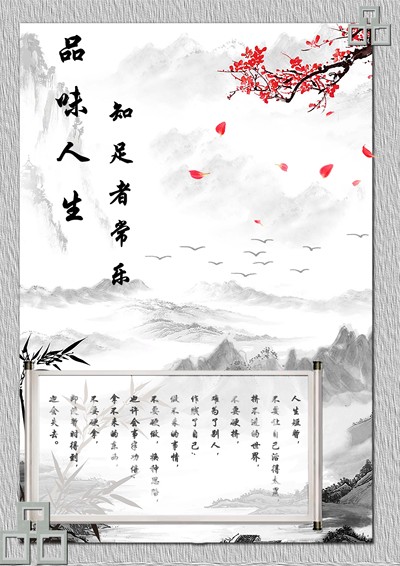 品味人生
知足者常乐
人生短暂，
不要让自己活得太累，
挤不进的世界，
不要硬挤，
难为了别人，
作贱了自己；
做不来的事情，
不要硬做，换种思路，
也许会事半功倍；
拿不来的东西，
不要硬拿，
即使暂时得到，
也会失去。